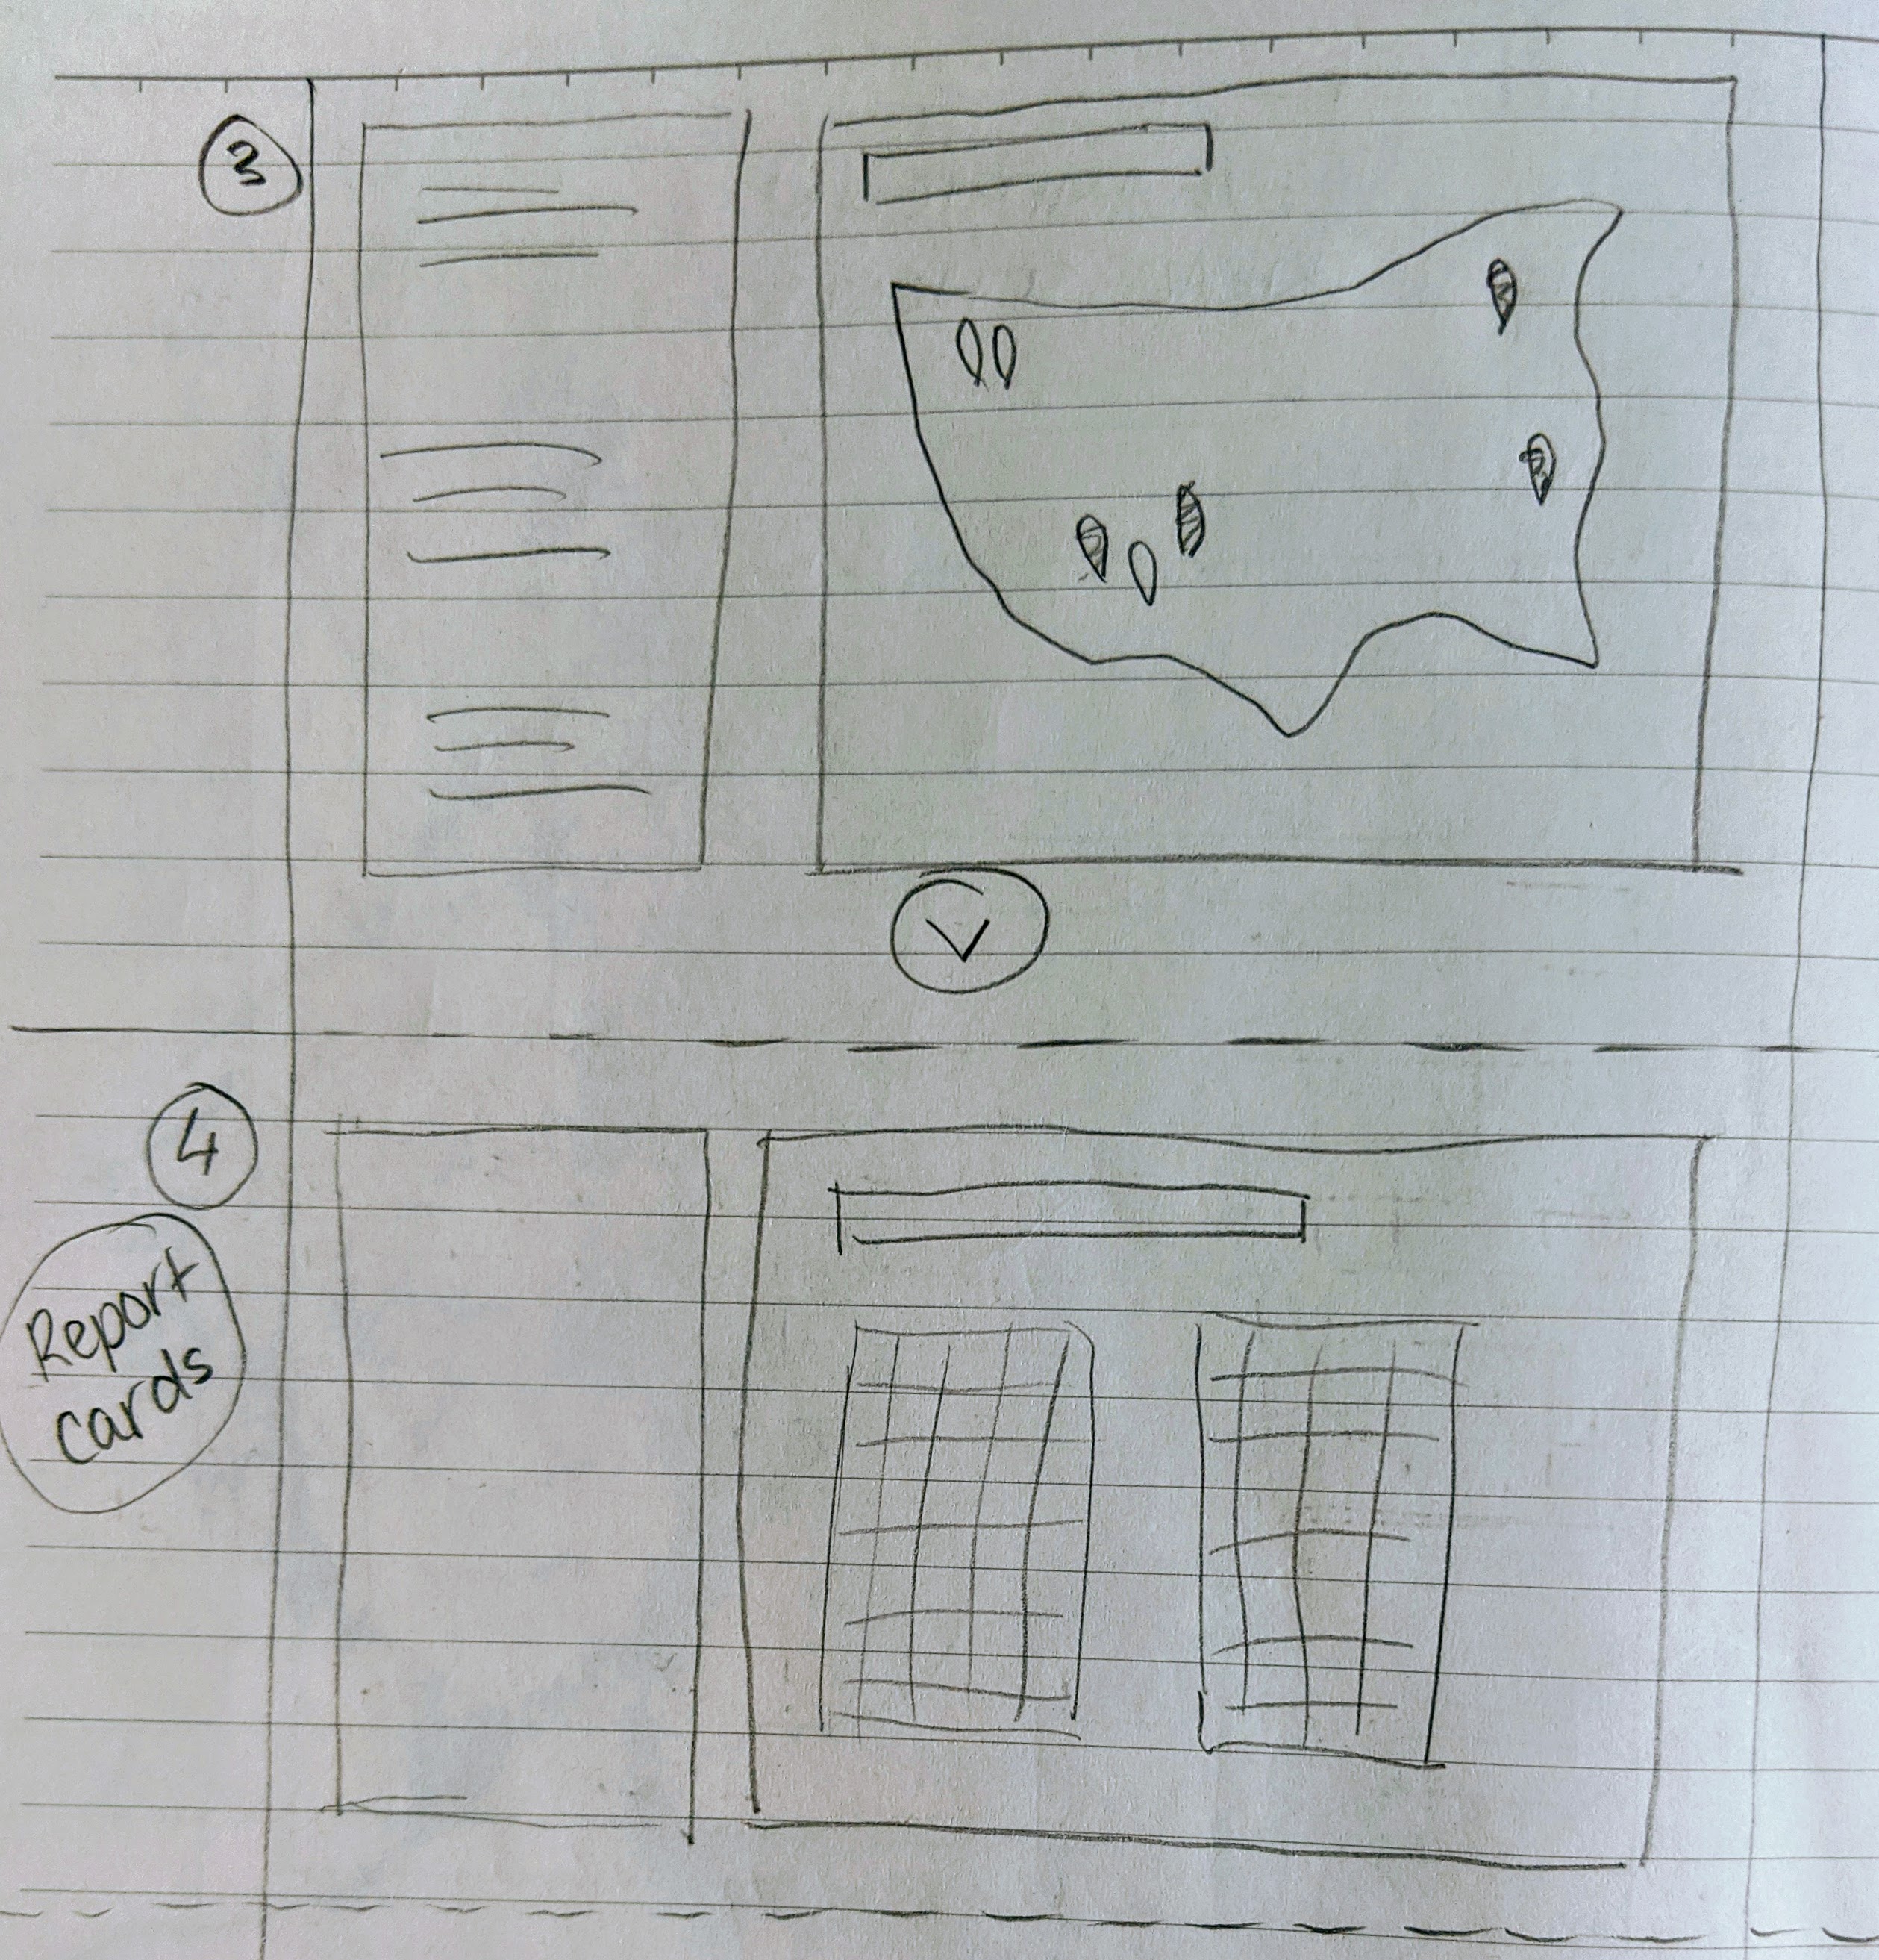 3
4
Report
cards